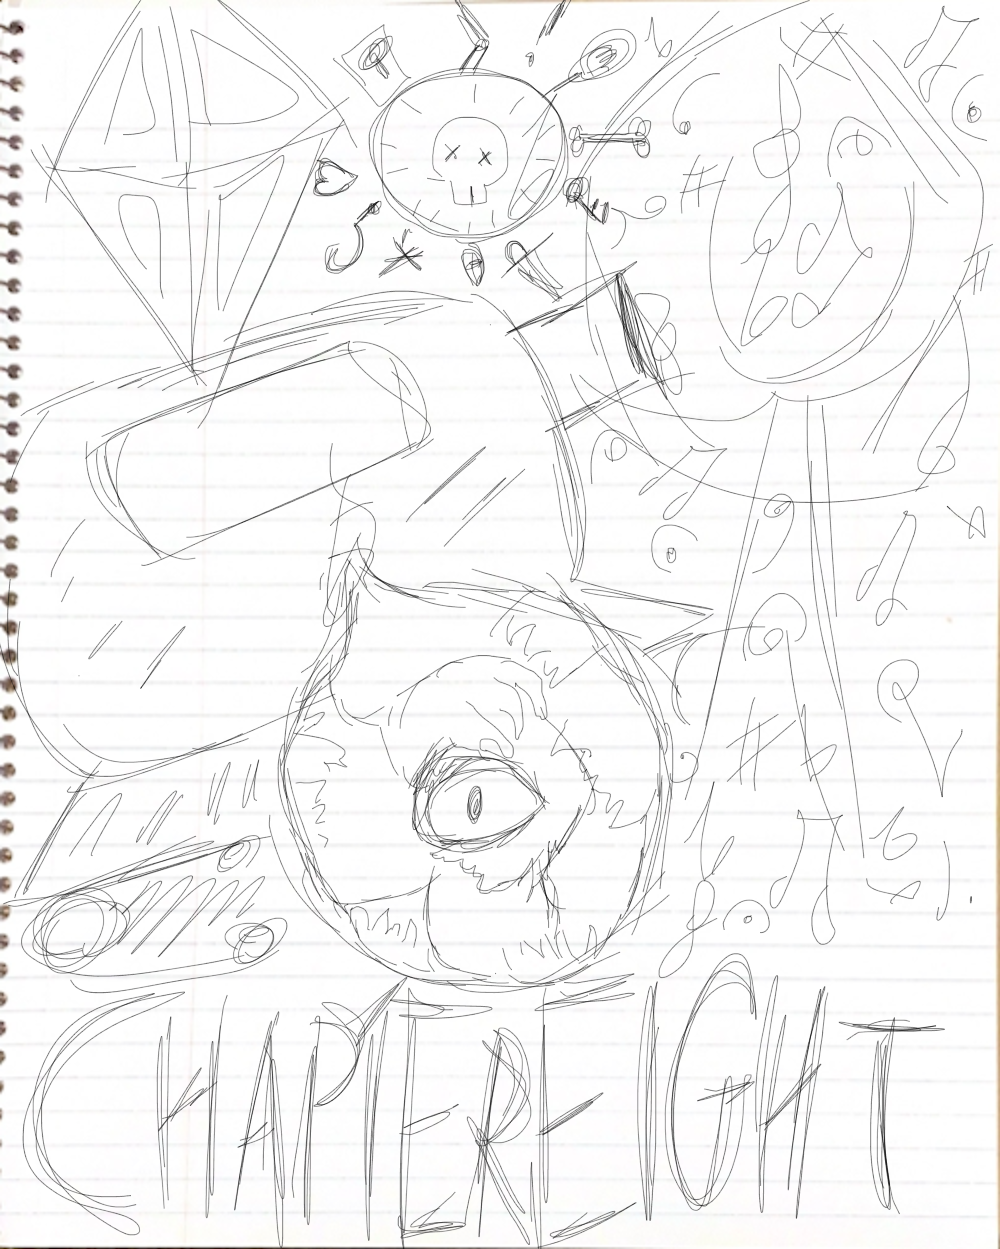 CHAPTER EIGHT